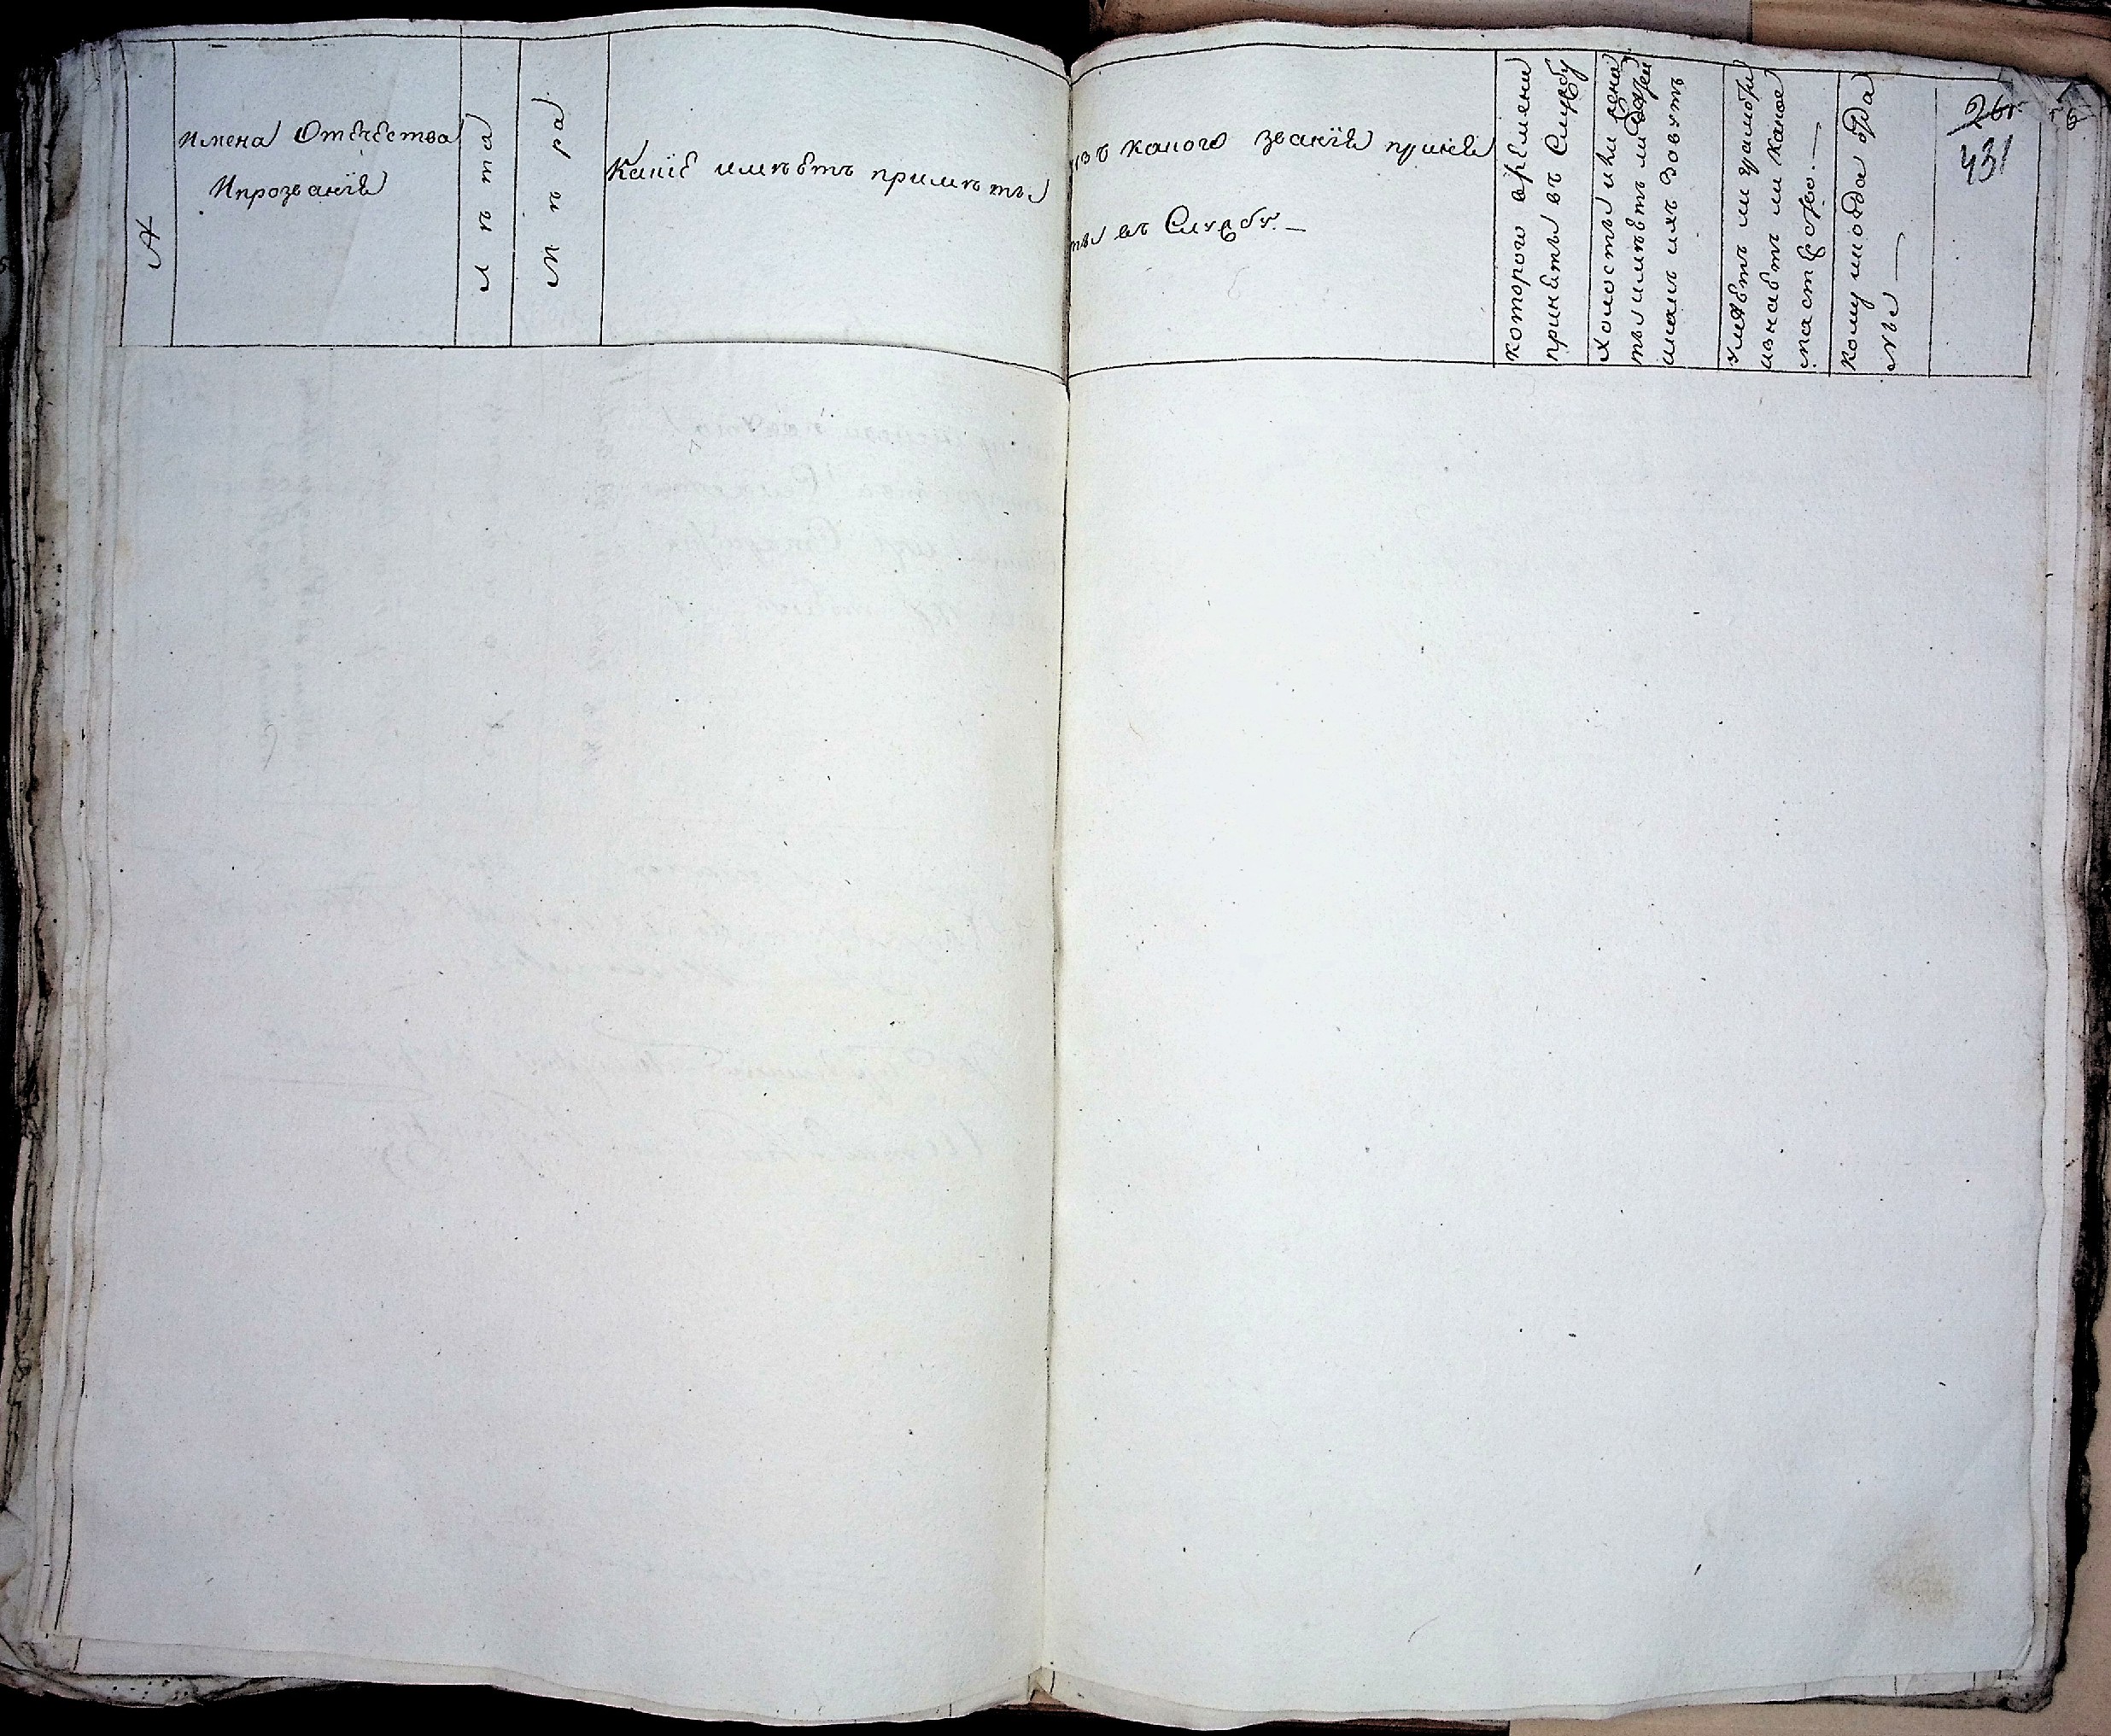 №
Имена Отечества
Ипрозвания
Лѣта
Мѣра
Какие имѣетъ примѣты
изъ какого звания приня
ты въ Службу. —
которого времени
приняты въ Службу
Холостыи или жена
ты имѣетъ ли детей
и какъ ихъ зовутъ
Умѣетъ ли грамоте
изнаетъ ли какое
мастерство. —
Кому и когда отда
ны —
431